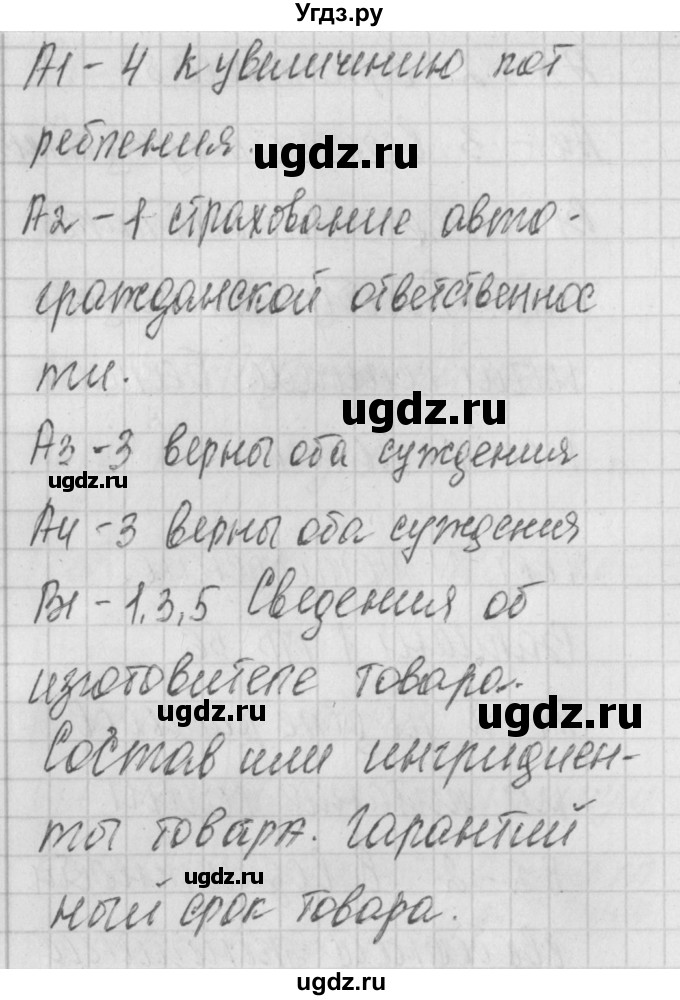 Угдз.ру
А1 - 4 к увеличению пот
ребления.
ugdz.ru
А2 - 1 страхование авто-
гражданской ответственнос
ти.
ugdz.ru
А3 - 3 верны оба суждения
ugdz.ru
А4 - 3 верны оба суждения
В1 - 1,3,5 Сведения об
изготовителе товара.
ugdz.ru
ugdz.ru
Состав или ингридиен-
ты товара. Гарантий
ugdz.ru
ный срок товара.
ugdz.ru